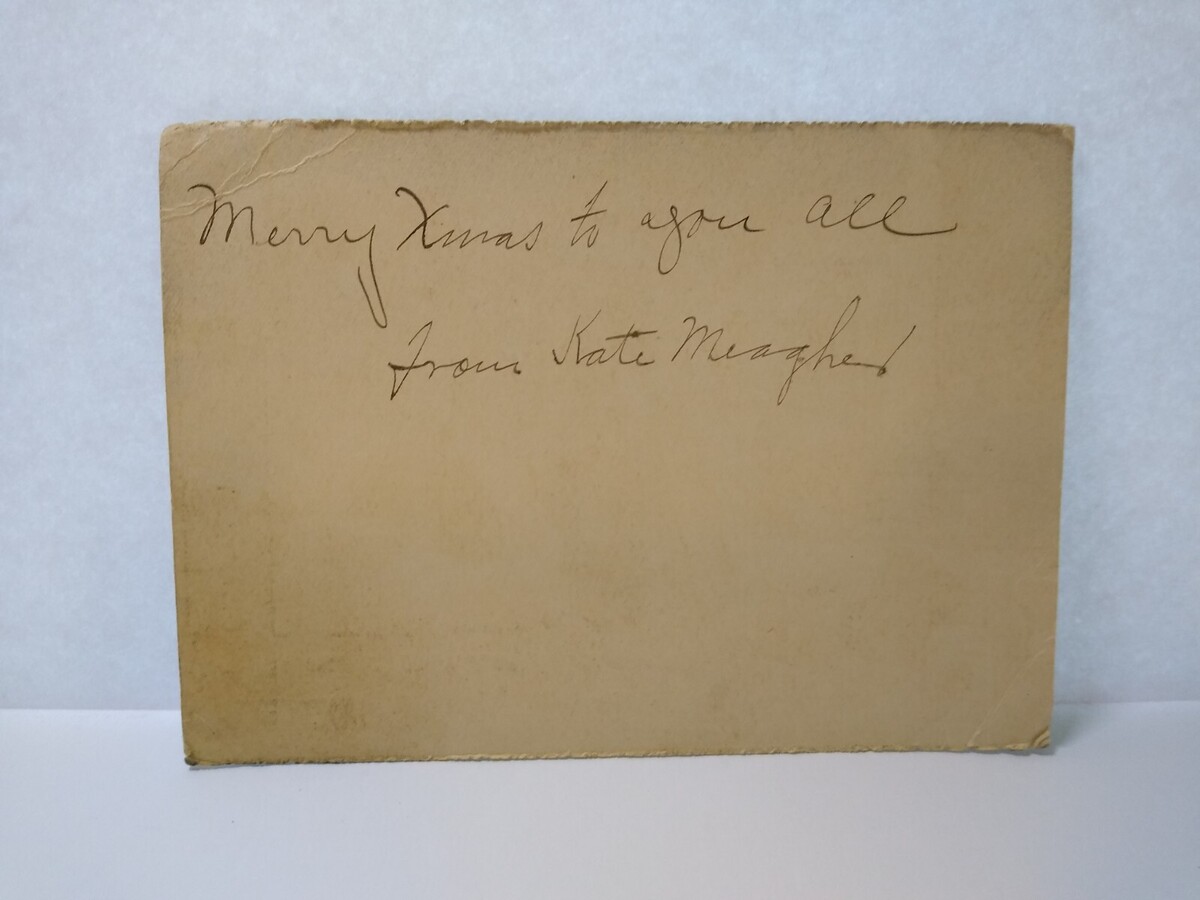 Merry Xmas to you all
from Kate Meagher